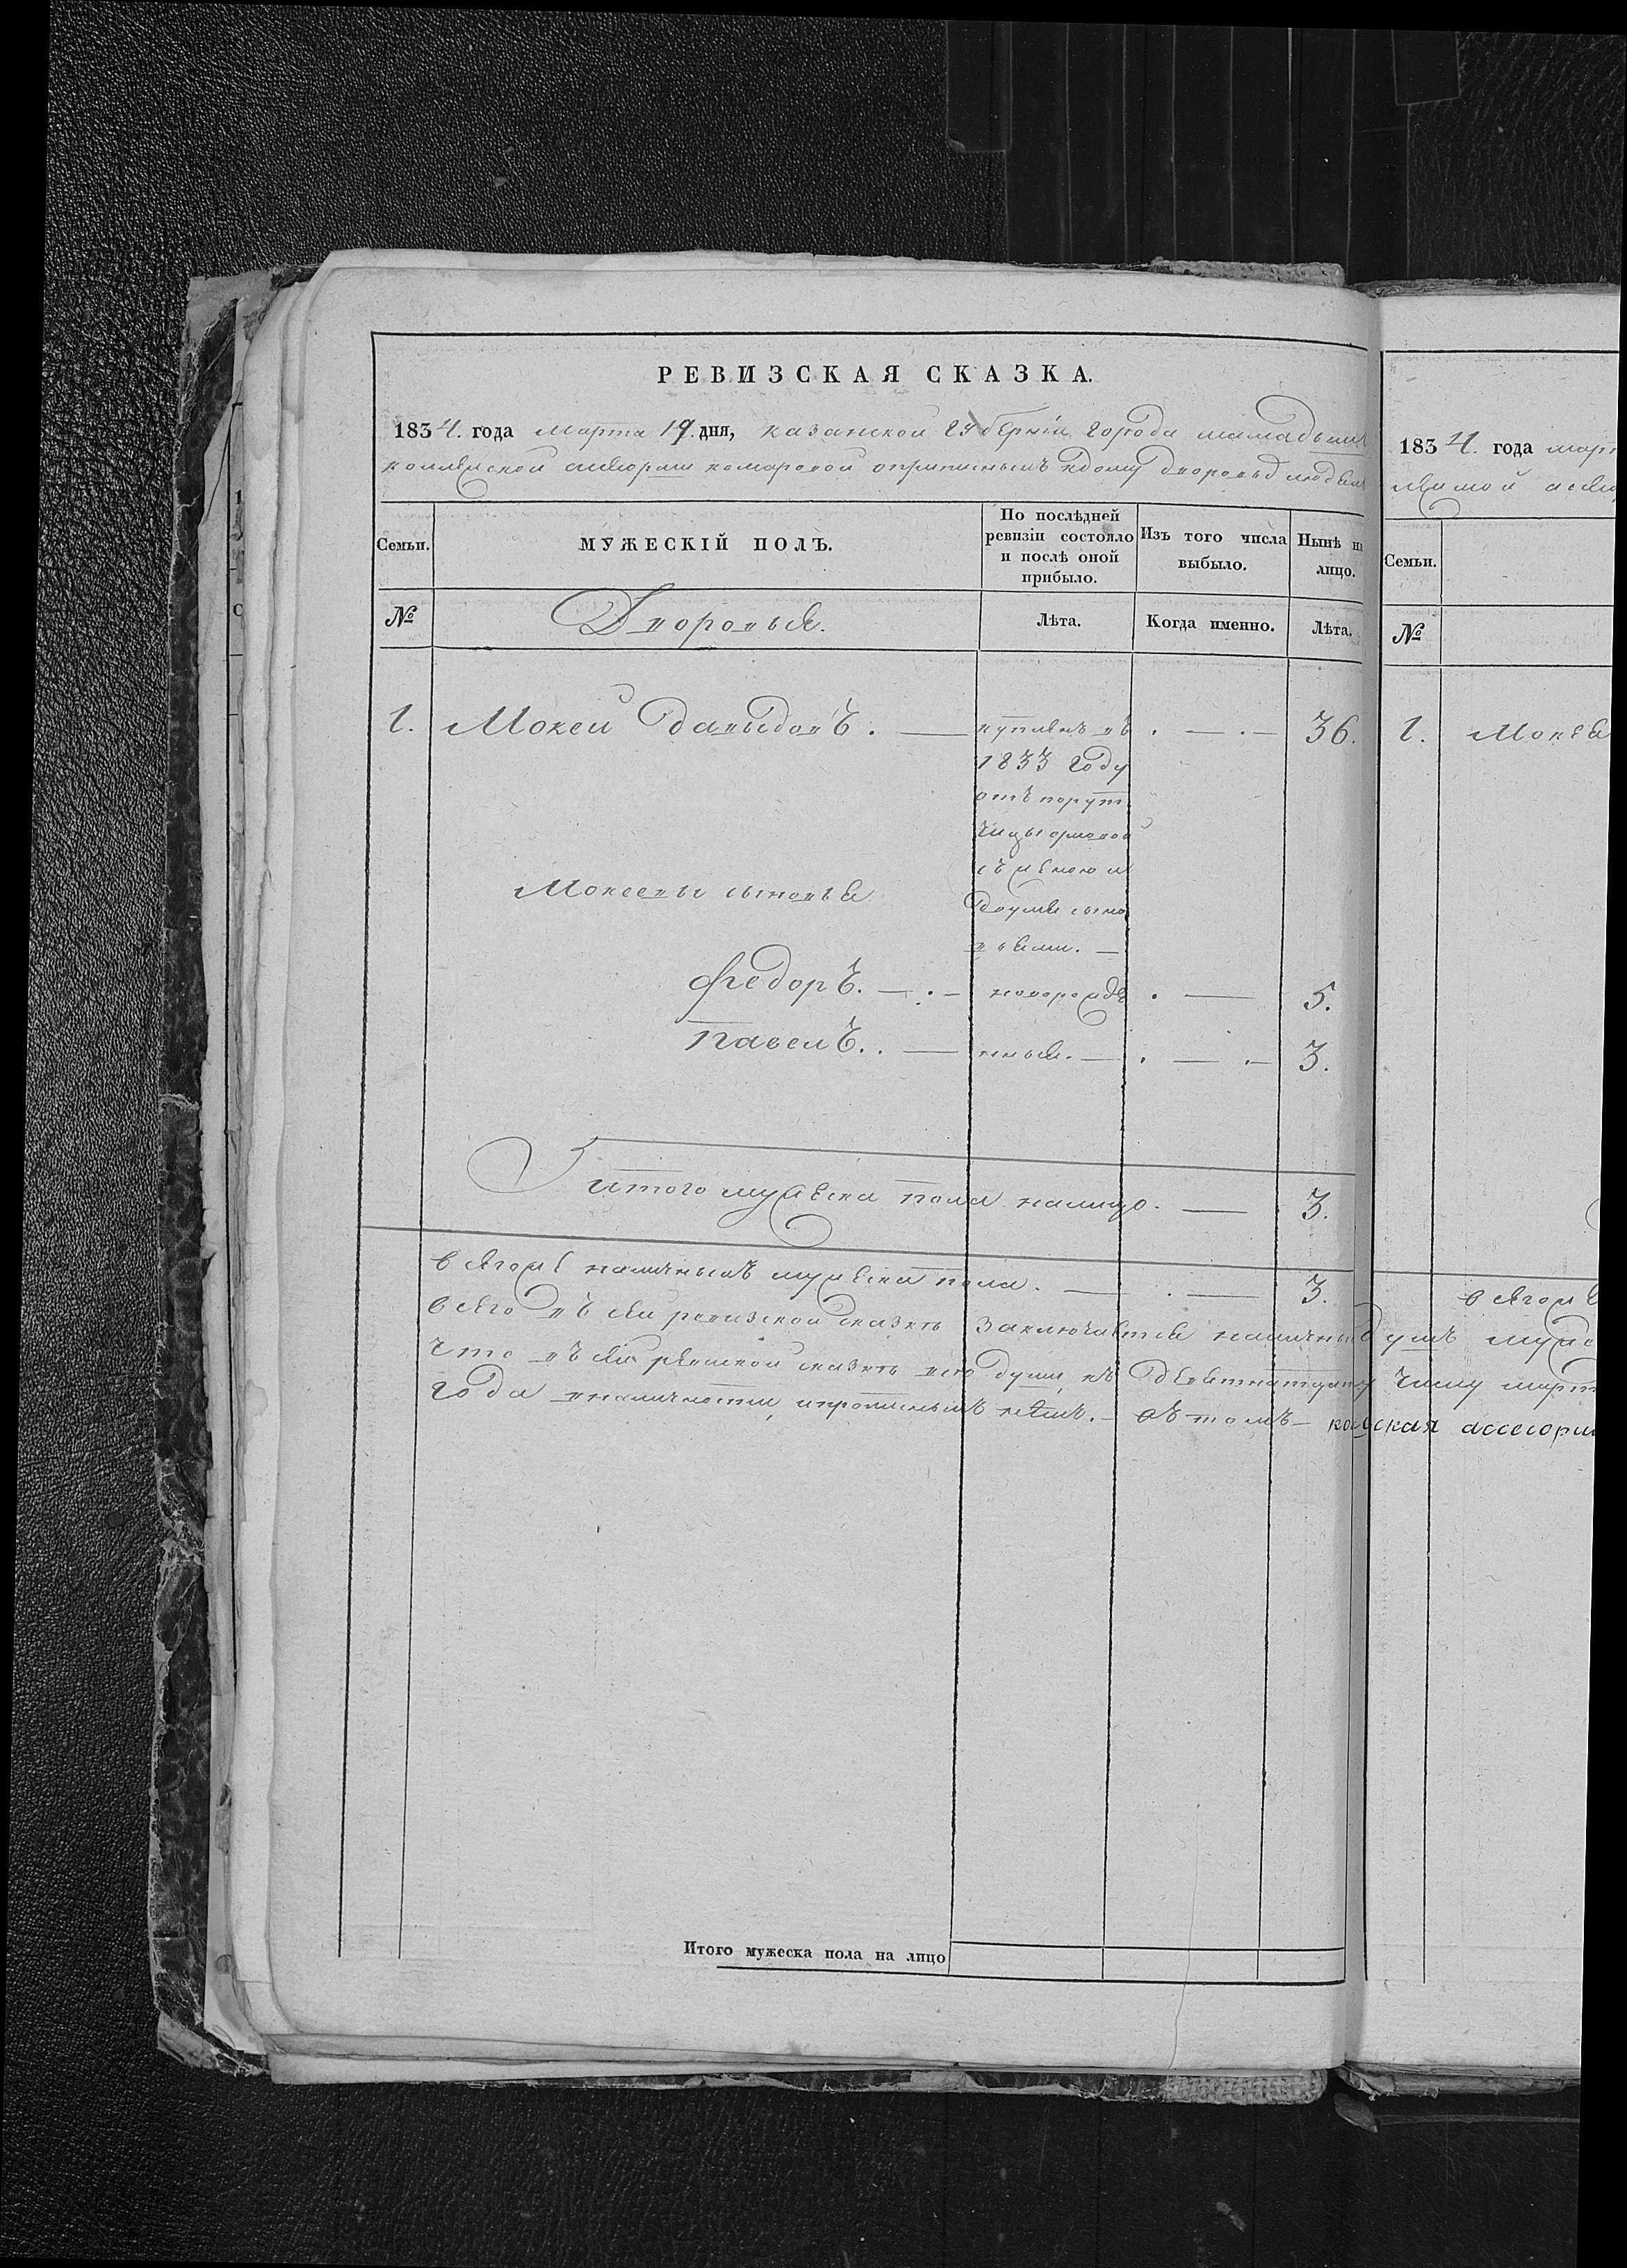 РЕВИЗСКАЯ СКАЗКА.
1834. года марта 19. дня, казанской губерніи города мамадыша
коллежской асесорши комаровой оприписныхъ кдому дворовыхъ людехъ
Семьи.
МУЖЕСКІЙ ПОЛЪ.
По послѣдней
ревизіи состояло
и послѣ оной
прибыло.
Изъ того числа
выбыло.
Нынѣ на
лицо.
№
Дворовыя.
Лѣта.
Когда именно.
Лѣта.
1. Мокеи давыдовъ. — купленъ въ . — . — 36.
1833 году
отъ порут
чицы орловой
съ женою и
двумя сыно
вьями. —
Мокеевы сыновья
Федоръ. — . — новорожде . — 5.
Павелъ. . — нныя. — . — . — 3.
итого мужеска пола налицо. — 3.
всягоже наличныхъ мужеска пола. — . — 3.
всяго въ сеи ревизской сказкѣ заключается наличны душъ мужс
что въ сеи ревизской сказкѣ все души, къ девятнатцату числу март
года вналичности, ипрописныхъ нѣтъ. — въ томъ — коллежская ассесорша
Итого мужеска пола на лицо
1834. года март
Семьи.
№
1. Мокея
всягоже